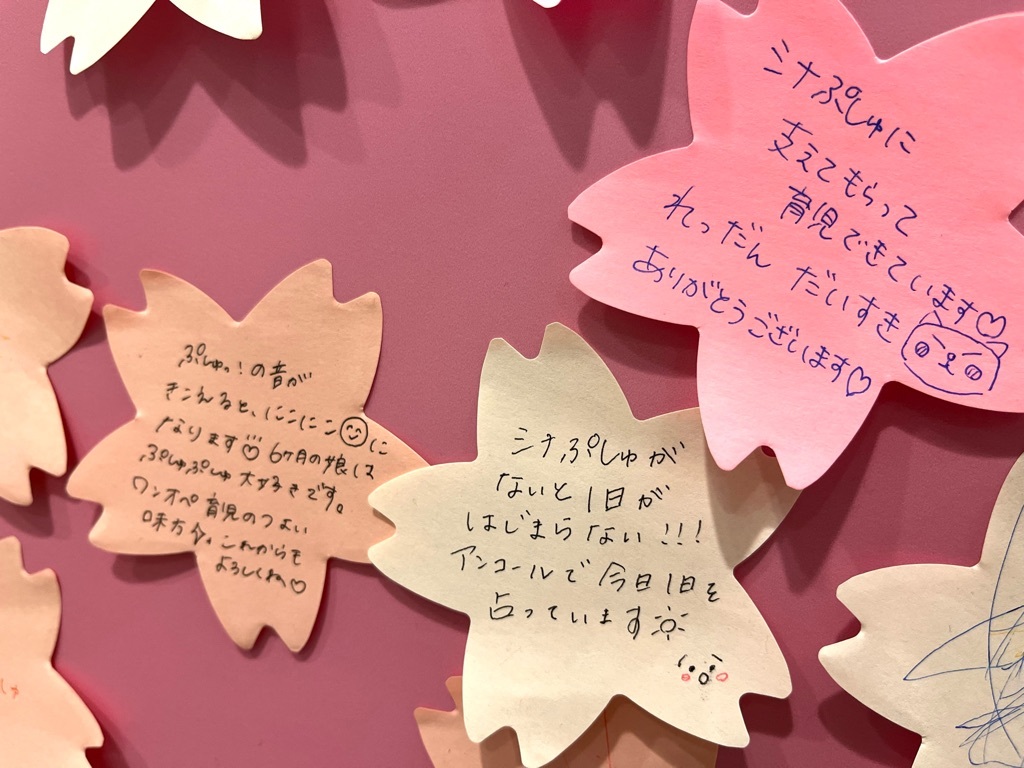 ぷしゅっ!の音が
きこえると、にこにこ😊に
なります♡ 6ヶ月の娘は
ぷしゅぷしゅ大好きです。
ワンオペ育児のつよい
味方です。これからも
よろしくね♡
シナぷしゅが
ないと1日が
はじまらない!!!
アンコールで今日1日を
占っています☼
シナぷしゅに
支えてもらって
育児できています♡
れっだん だいすき
ありがとうございます♡